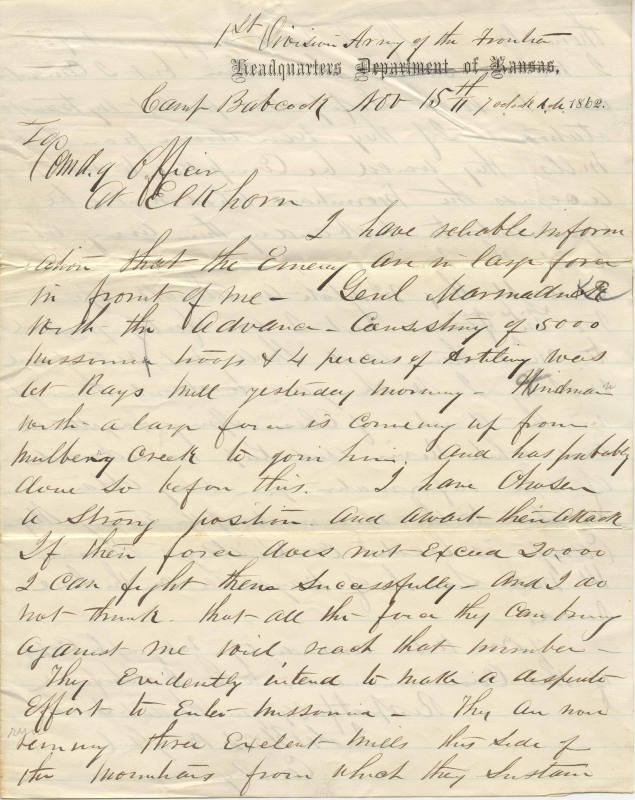 1st Division Army of the Frontier
Headquarters Department of Kansas,
Camp Babcock Nov 15th 7 oclock A.M. 1862.
To
Comd.g Officer
At Elkhorn
I have reliable inform
ation that the Enemy are in large force
in front of me - Genl Marmaduke
with the Advance - Consisting of 5000
Missouria troops & 4 peices of Artillery was
at Rays Mill yesterday morning - Hindman
with a large force is comeing up from
Mulberry Creek to join him. And has probably
done so before this. I have Chosen
a Strong position. And await their attack
If their force does not Exceed 20000
I can fight them Successfully - And I do
not think that all the force they can bring
against me will reach that number -
They Evidently intend to make a desperate
Effort to Enter Missouria - They are now
runing three Exelent Mills this Side of
the Mountians from which they Sustain